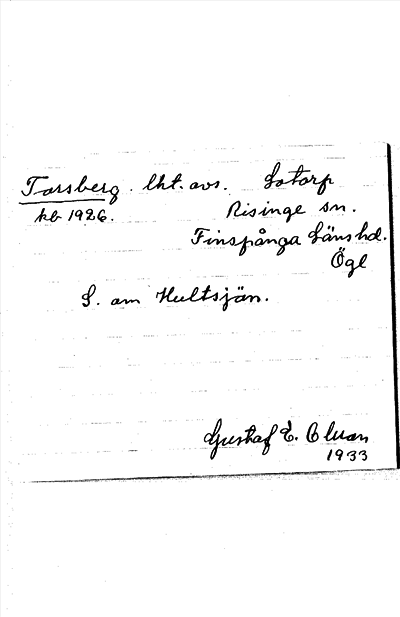 Torsberg. lht. avs. Lotorp
kb 1926. Risinge sn.
Finspånga Läns hd.
Ögl
S. om Hultsjön.
Gustaf E. Cluan
1933